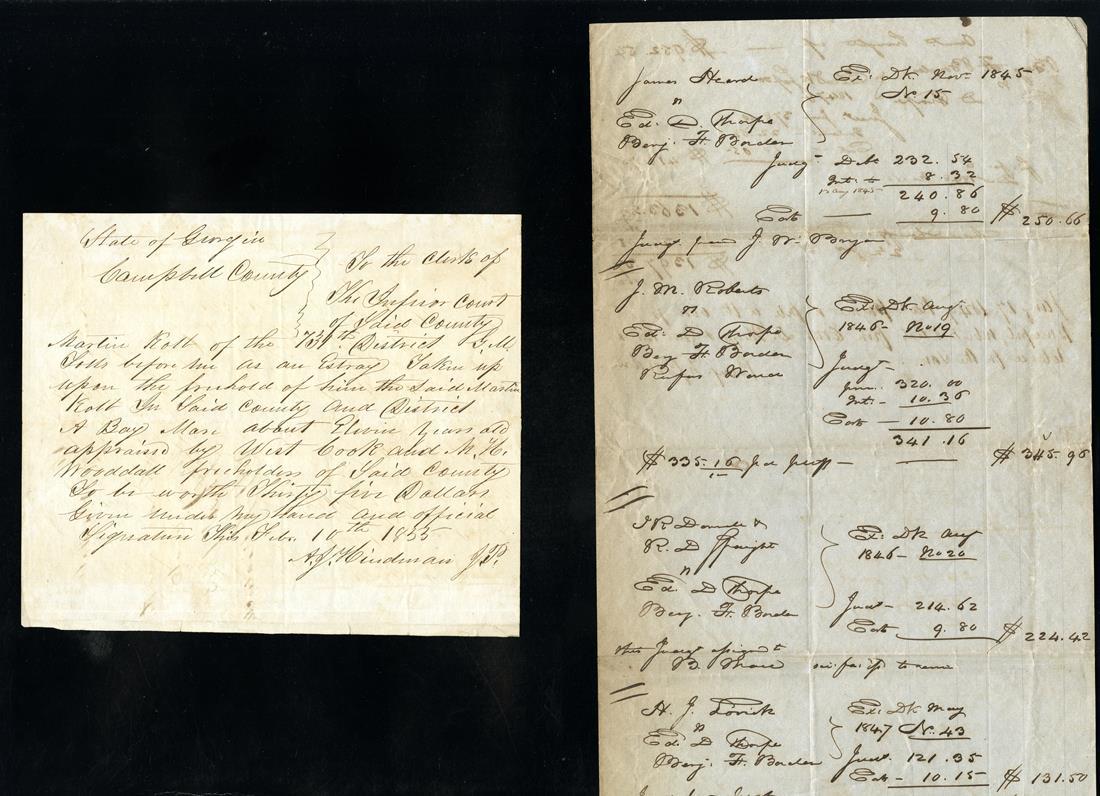 State of Georgia
Campbell County
To the Clerk of
The Inferior Court
of Said County
Martin Kolb of the 731th District G.M.
Tolls before me as an Estray Taken up
upon the freehold of him the Said Martin
Kolb In Said County and District
A Bay Mare about Eleven years old
appraised by West Cook and M. H.
Wooddall freeholders of Said County
To be worth Thirty five Dollars
Given under my hand and official
Signature This Feb. 10th 1855
A. J. Hindman J.P.
James Heard
Ed. D. Thorpe
Benj. F. Borden
Ex. Dk. Nov. 1845
No 15
Judgt Debt 232.54
Int. to 8.32
1845
240.86
Cost 9.80 $250.66
Judgt J. W.
J. M. Roberts
Ed. D Thorpe
Benj. F. Borden
Rufus
Ex. Dk Aug
1846 - No 19
Judgt
320.00
Int. - 10.36
Cost - 10.80
341.16
$335.16 $345.96
J R &
R. D
Ed. D Thorpe
Benj. F. Borden
Ex. Dk Aug
1846 - No 20
Judgt - 214.62
Cost 9.80 $224.42
this Judgt assigned to
B.
H. J.
Ed. D Thorpe
Benj. F. Borden
Ex. Dk May
1847 No. 43
Judgt 121.35
Cost - 10.15 $131.50